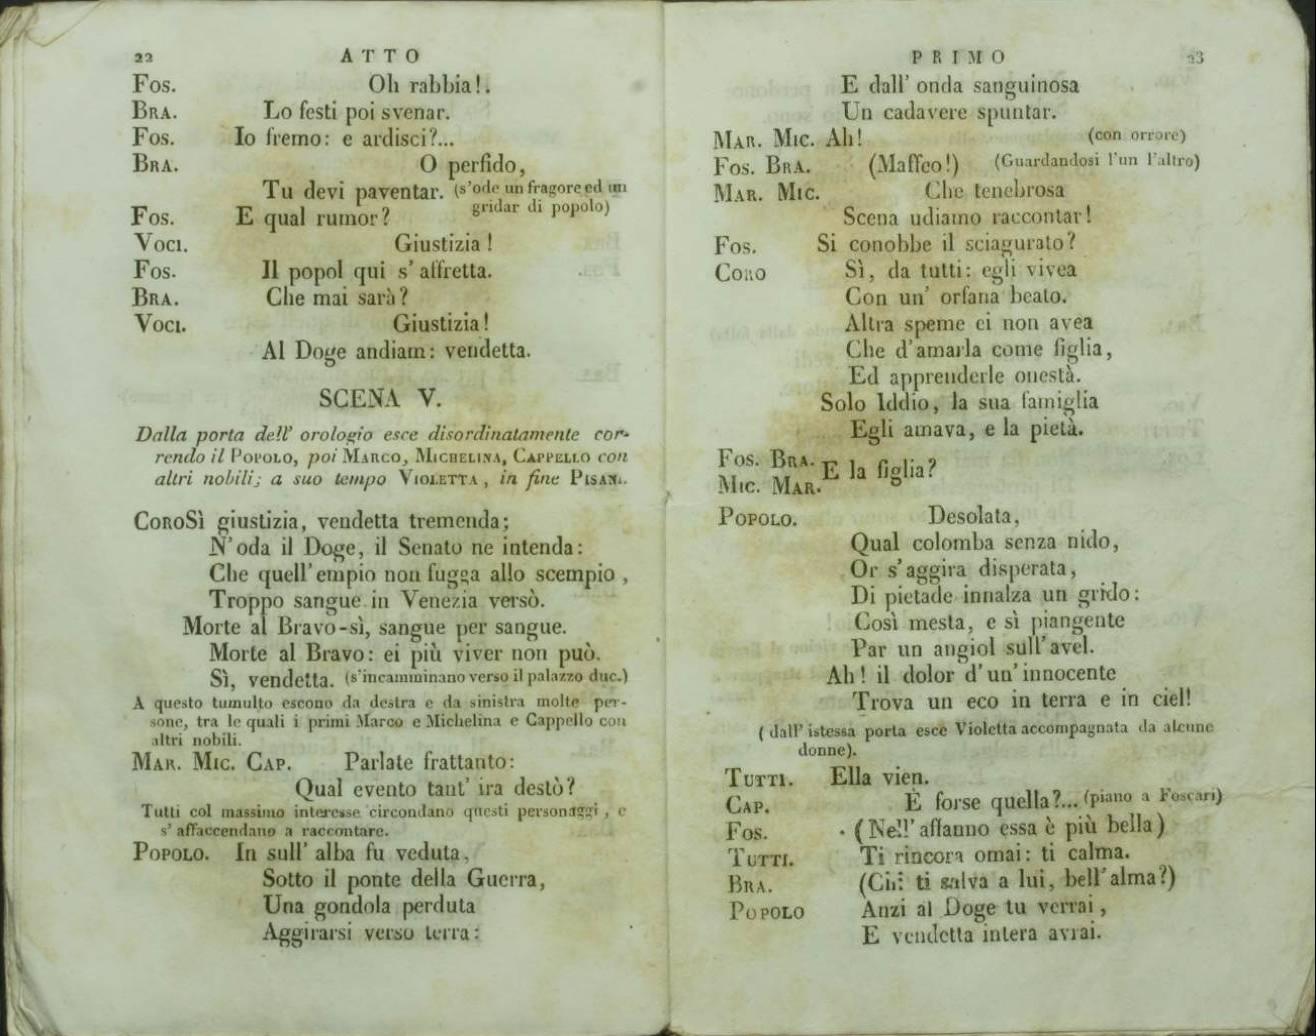 22 ATTO
Fos. Oh rabbia!.
Bra. Lo festi poi svenar.
Fos. Io fremo: e ardisci?...
Bra. O perfido,
Tu devi paventar. (s'ode un fragore ed un
gridar di popolo)
Fos. E qual rumor?
Voci. Giustizia!
Fos. Il popol qui s' affretta.
Bra. Che mai sarà?
Voci. Giustizia!
Al Doge andiam: vendetta.
SCENA V.
Dalla porta dell' orologio esce disordinatamente cor-
rendo il Popolo, poi Marco, Michelina, Cappello con
altri nobili; a suo tempo Violetta, in fine Pisani.
Coro Sì giustizia, vendetta tremenda;
N'oda il Doge, il Senato ne intenda:
Che quell' empio non fugga allo scempio,
Troppo sangue in Venezia versò.
Morte al Bravo-sì, sangue per sangue.
Morte al Bravo: ei più viver non può.
Sì, vendetta. (s'incamminano verso il palazzo duc.)
A questo tumulto escono da destra e da sinistra molte per-
sone, tra le quali i primi Marco e Michelina e Cappello con
altri nobili.
Mar. Mic. Cap. Parlate frattanto:
Qual evento tant' ira destò?
Tutti col massimo interesse circondano questi personaggi, e
s' affaccendano a raccontare.
Popolo. In sull' alba fu veduta,
Sotto il ponte della Guerra,
Una gondola perduta
Aggirarsi verso terra:
PRIMO 23
E dall' onda sanguinosa
Un cadavere spuntar.
Mar. Mic. Ah! (con orrore)
Fos. Bra. (Maffeo!) (Guardandosi l'un l'altro)
Mar. Mic. Che tenebrosa
Scena udiamo raccontar!
Fos. Si conobbe il sciagurato?
Coro Sì, da tutti: egli vivea
Con un' orfana beato.
Altra speme ei non avea
Che d'amarla come figlia,
Ed apprenderle onestà.
Solo Iddio, la sua famiglia
Egli amava, e la pietà.
Fos. Bra.
Mic. Mar. E la figlia?
Popolo. Desolata,
Qual colomba senza nido,
Or s'aggira disperata,
Di pietade innalza un grido:
Così mesta, e sì piangente
Par un angiol sull'avel.
Ah! il dolor d'un'innocente
Trova un eco in terra e in ciel!
(dall' istessa porta esce Violetta accompagnata da alcune
donne).
Tutti. Ella vien.
Cap. È forse quella?... (piano a Foscari)
Fos. (Nell'affanno essa è più bella)
Tutti. Ti rincora omai: ti calma.
Bra. (Chi ti salva a lui, bell'alma?)
Popolo Anzi al Doge tu verrai,
E vendetta intera avrai.